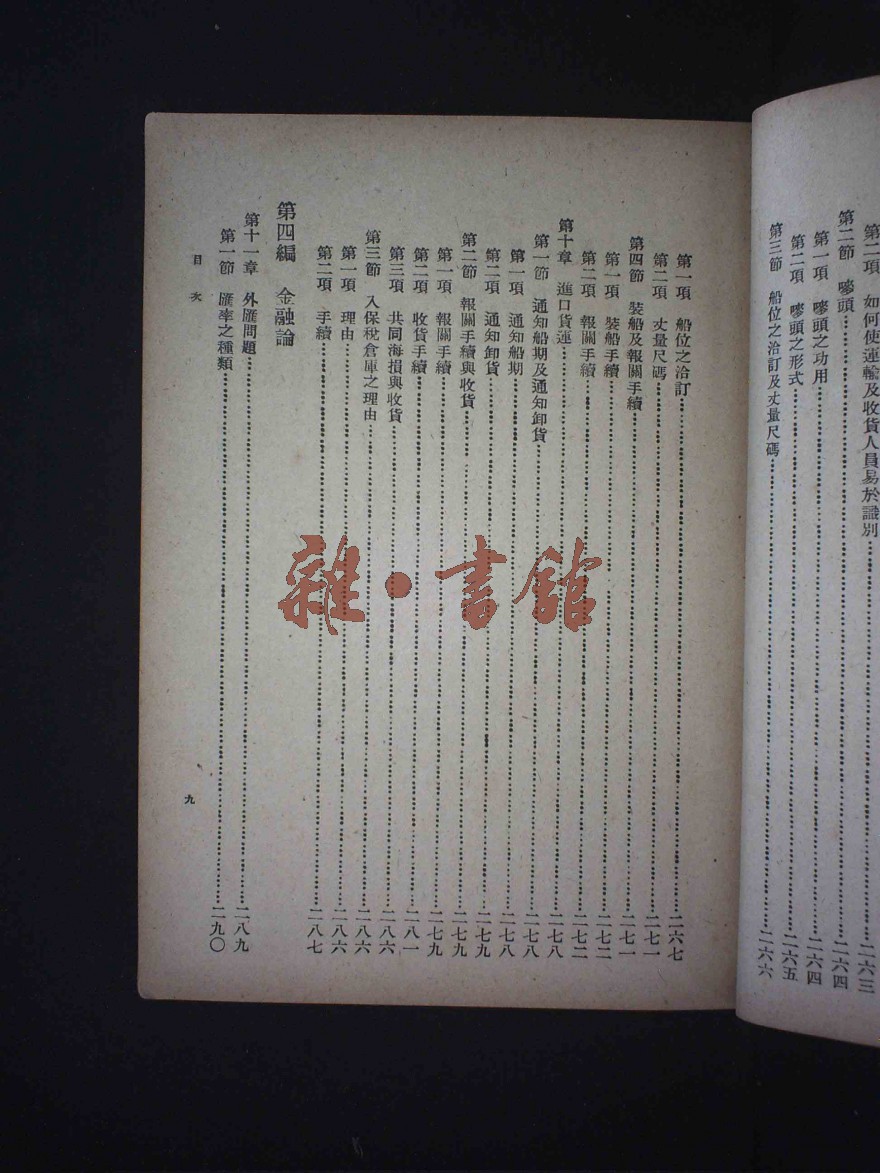 第二項　如何使運輸及收貨人員易於識別……二六三
第二節　嘜頭……二六四
第一項　嘜頭之功用……二六四
第二項　嘜頭之形式……二六五
第三節　船位之洽訂及丈量尺碼……二六六
第一項　船位之洽訂……二六七
第二項　丈量尺碼……二七一
第四節　裝船及報關手續……二七一
第一項　裝船手續……二七二
第二項　報關手續……二七二
第十章　進口貨運……二七八
第一節　通知船期及通知卸貨……二七八
第一項　通知船期……二七八
第二項　通知卸貨……二七九
第二節　報關手續與收貨……二七九
第一項　報關手續……二七九
第二項　收貨手續……二八一
第三項　共同海損與收貨……二八六
第三節　入保稅倉庫之理由……二八六
第一項　理由……二八六
第二項　手續……二八七
第四編　金融論
第十一章　外匯問題……二八九
第一節　匯率之種類……二九〇
目次
九
雜·書館